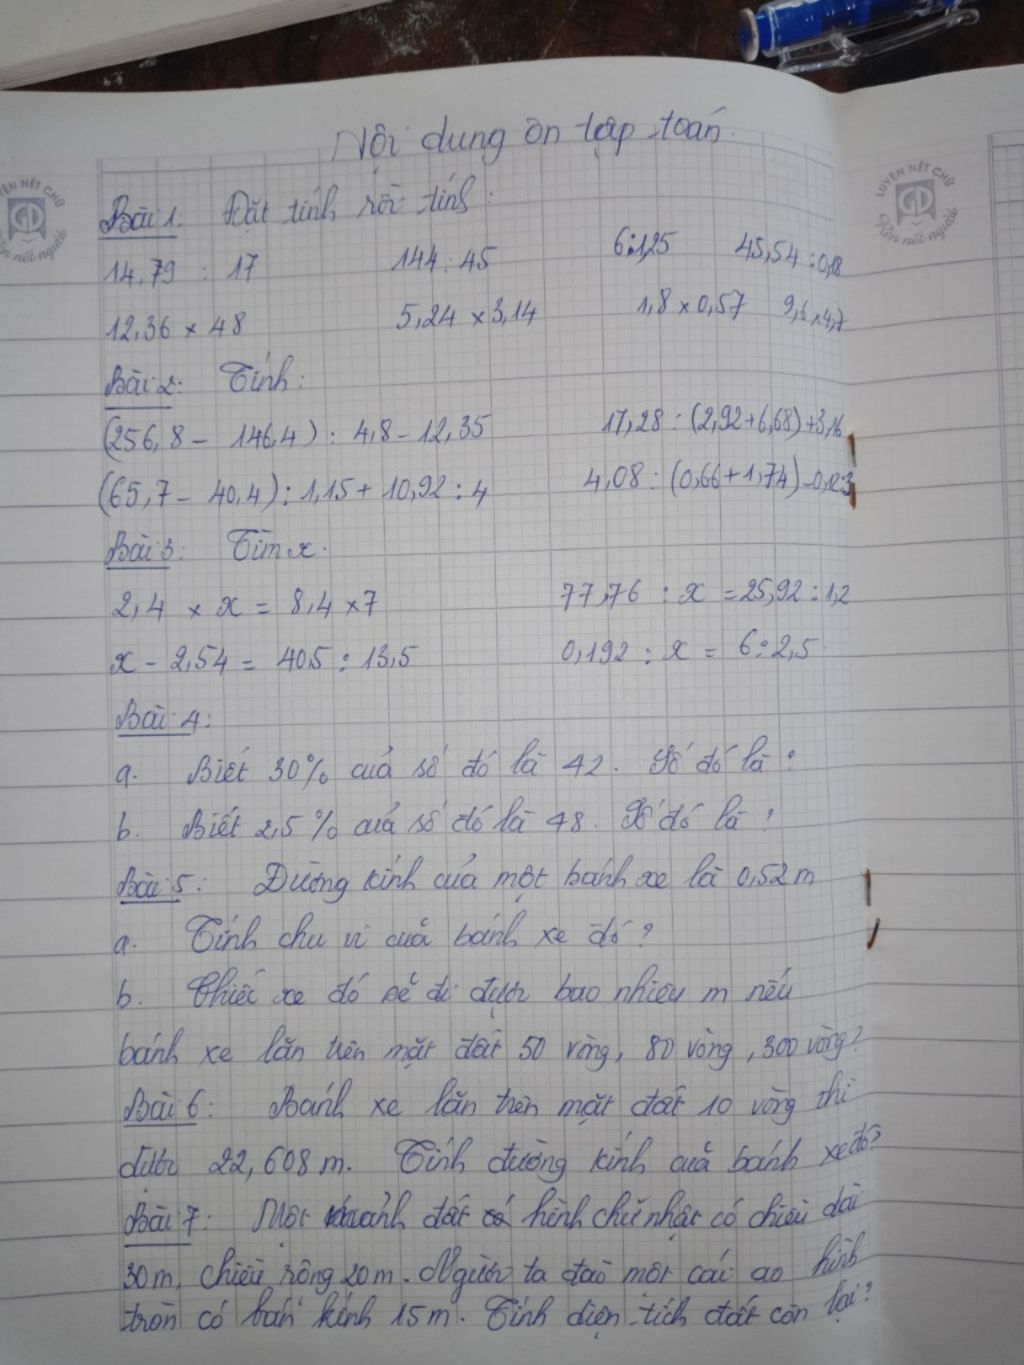 Nội dung ôn tập toán.
LUYỆN NÉT CHỮ
Rèn nết người
LUYỆN NÉT CHỮ
Rèn nết người
Bài 1: Đặt tính rồi tính:
14,79 : 17 144 : 45 6:1,25 45,54 : 0,18
12,36 × 48 5,24 × 3,14 1,8 × 0,57 9,6 × 4,7
Bài 2: Tính:
(256,8 - 146,4) : 4,8 - 12,35 17,28 : (2,92+6,68) +3,16
(65,7 - 40,4) : 1,15 + 10,92 : 4 4,08 : (0,66+1,74) - 0,12:3
Bài 3: Tìm x.
2,4 × x = 8,4 × 7 77,76 : x = 25,92 : 1,2
x - 2,54 = 40,5 : 13,5 0,192 : x = 6 : 2,5
Bài 4:
a. Biết 30% của số đó là 42. Số đó là ?
b. Biết 2,5% của số đó là 48. Số đó là ?
Bài 5: Đường kính của một bánh xe là 0,52 m
a. Tính chu vi của bánh xe đó ?
b. Chiếc xe đó sẽ đi được bao nhiêu m nếu
bánh xe lăn trên mặt đất 50 vòng, 80 vòng, 300 vòng?
Bài 6: Bánh xe lăn trên mặt đất 10 vòng thì
được 22,608 m. Tính đường kính của bánh xe đó?
Bài 7: Một mảnh đất có hình chữ nhật có chiều dài
30m, chiều rộng 20m. Người ta đào một cái ao hình
tròn có bán kính 15m. Tính diện tích đất còn lại?